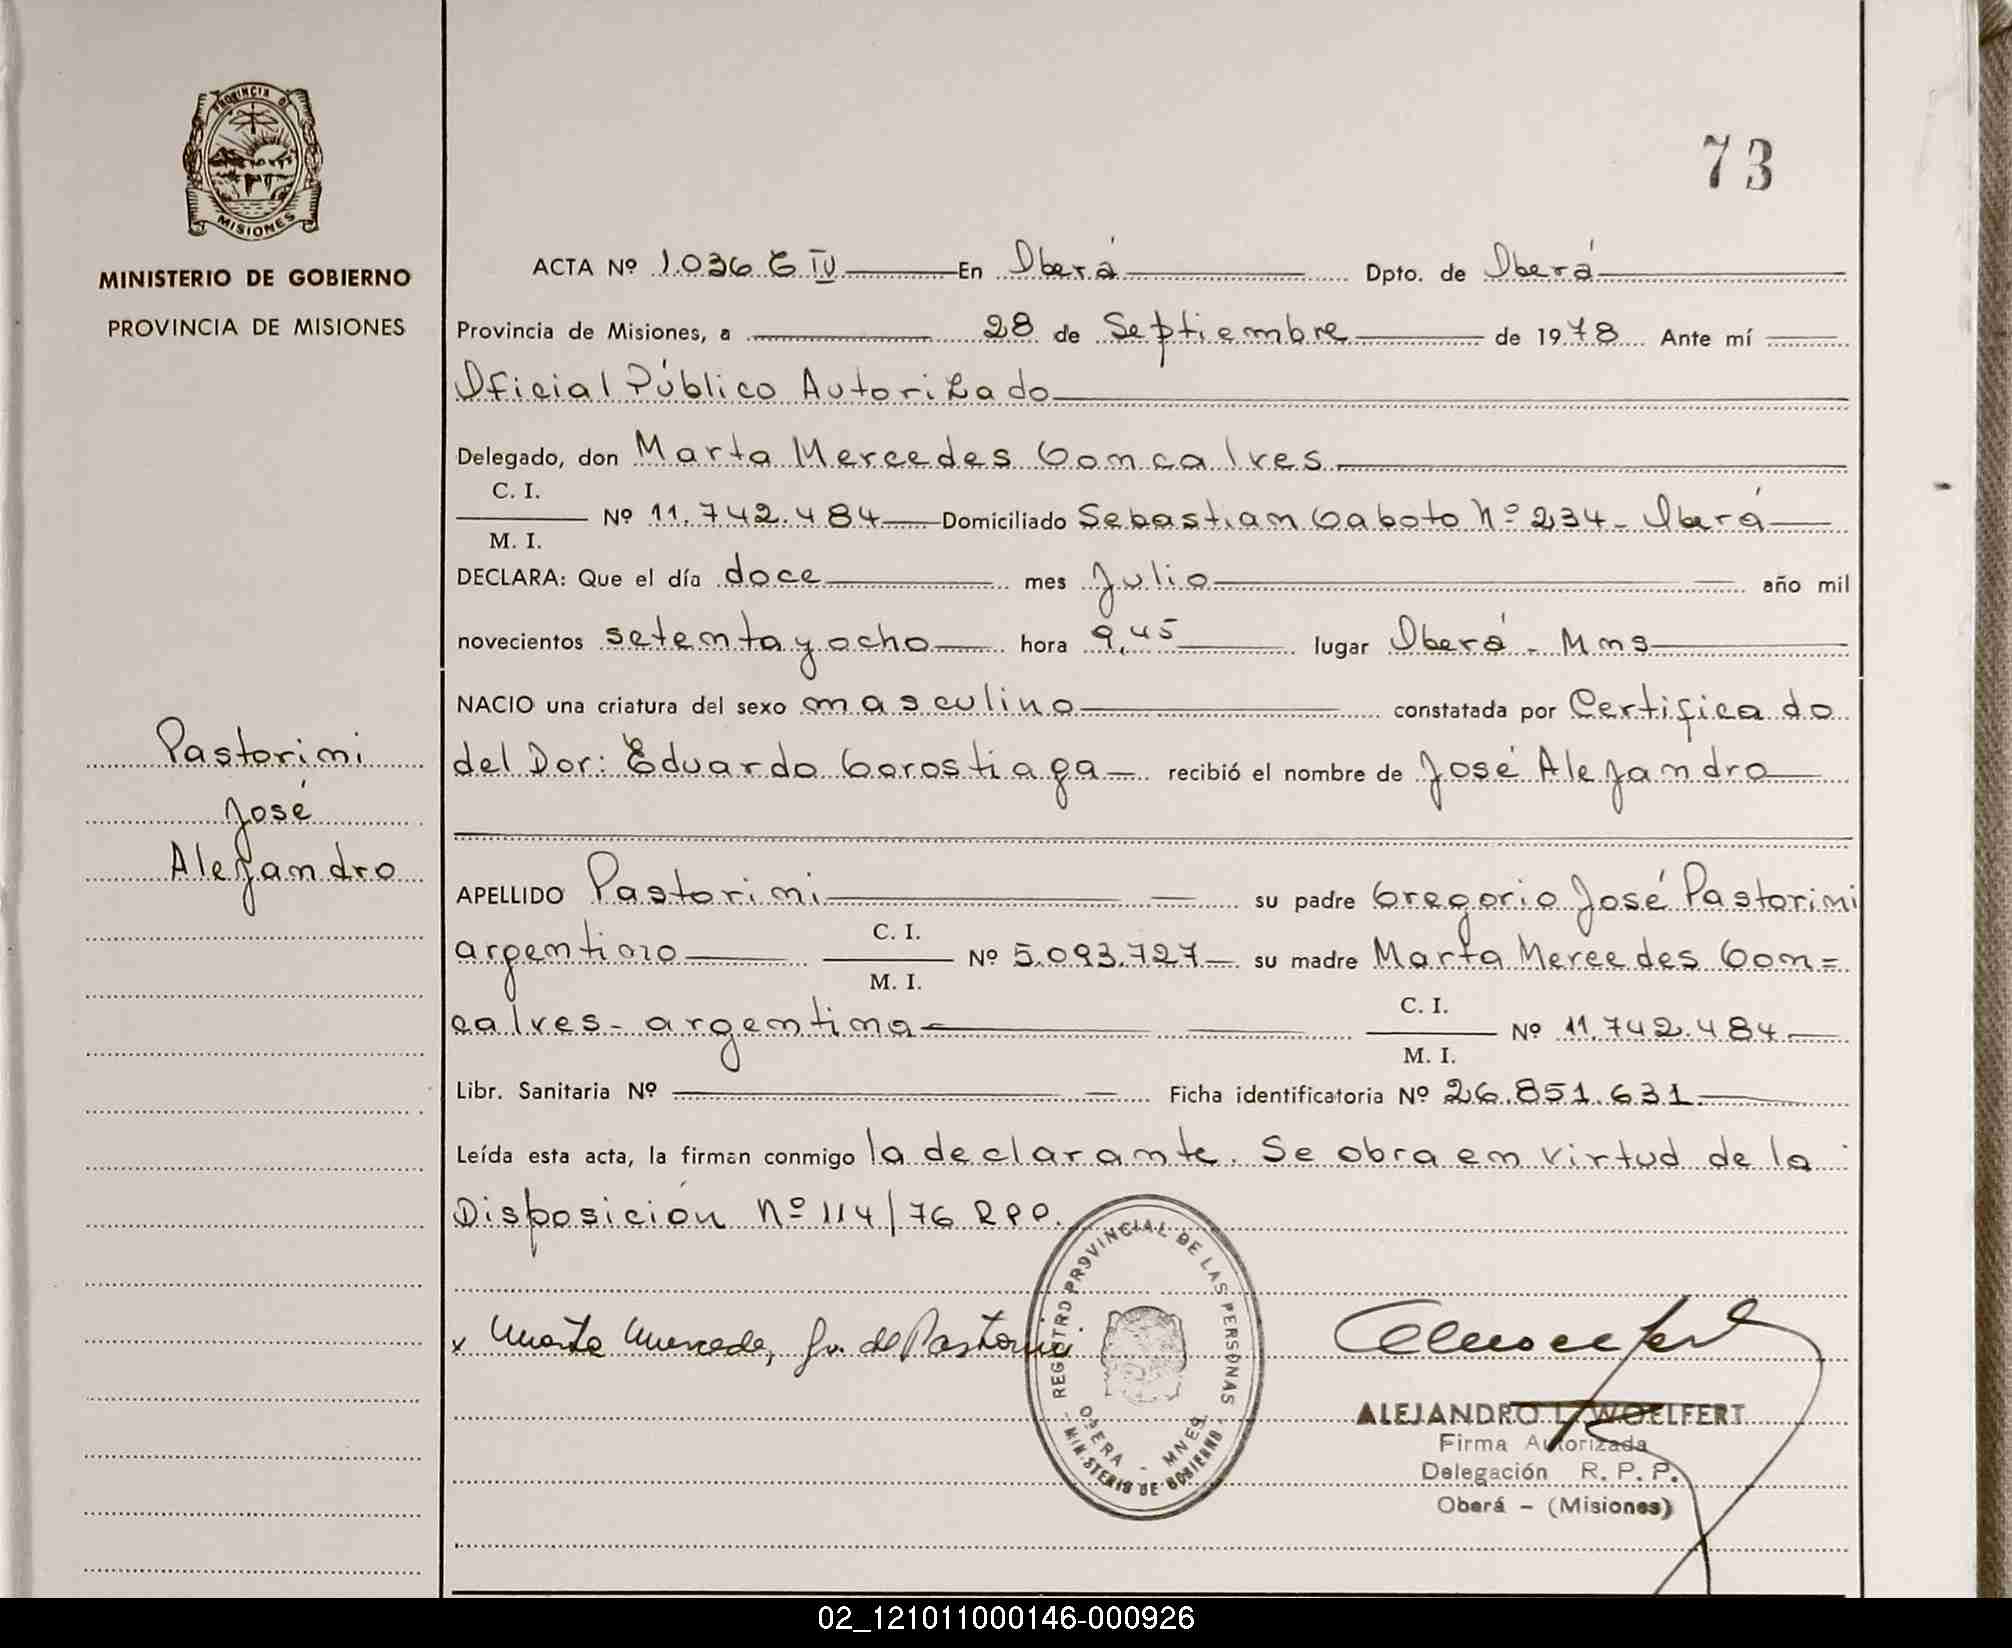 PROVINCIA DE
MISIONES
MINISTERIO DE GOBIERNO
PROVINCIA DE MISIONES
73
ACTA Nº 1.036 C IV En Oberá Dpto. de Oberá
Provincia de Misiones, a 28 de Septiembre de 1978 Ante mí
Oficial Público Autorizado
Delegado, don Marta Mercedes Goncalves
C. I.
Nº 11.742.484 Domiciliado Sebastian Gaboto Nº 234 - Oberá
M. I.
DECLARA: Que el día doce mes Julio año mil
novecientos setenta y ocho hora 9,45 lugar Oberá - Mnes
NACIO una criatura del sexo masculino constatada por Certificado
del Dor: Eduardo Gorostiaga recibió el nombre de José Alejandro
Pastorini
José
Alejandro
APELLIDO Pastorini su padre Gregorio José Pastorini
C. I.
argentino Nº 5.093.727 su madre Marta Mercedes Gon=
M. I.
C. I.
calves - argentina Nº 11.742.484
M. I.
Libr. Sanitaria Nº Ficha identificatoria Nº 26.851.631
Leída esta acta, la firman conmigo la declarante. Se obra en virtud de la
Disposición Nº 114/76 RPP.
x Marta Mercedes G. de Pastorini
REGISTRO PROVINCIAL DE LAS PERSONAS
OBERA - MNES.
MINISTERIO DE GOBIERNO
ALEJANDRO L. WOELFERT
Firma Autorizada
Delegación R. P. P.
Oberá - (Misiones)
02_121011000146-000926